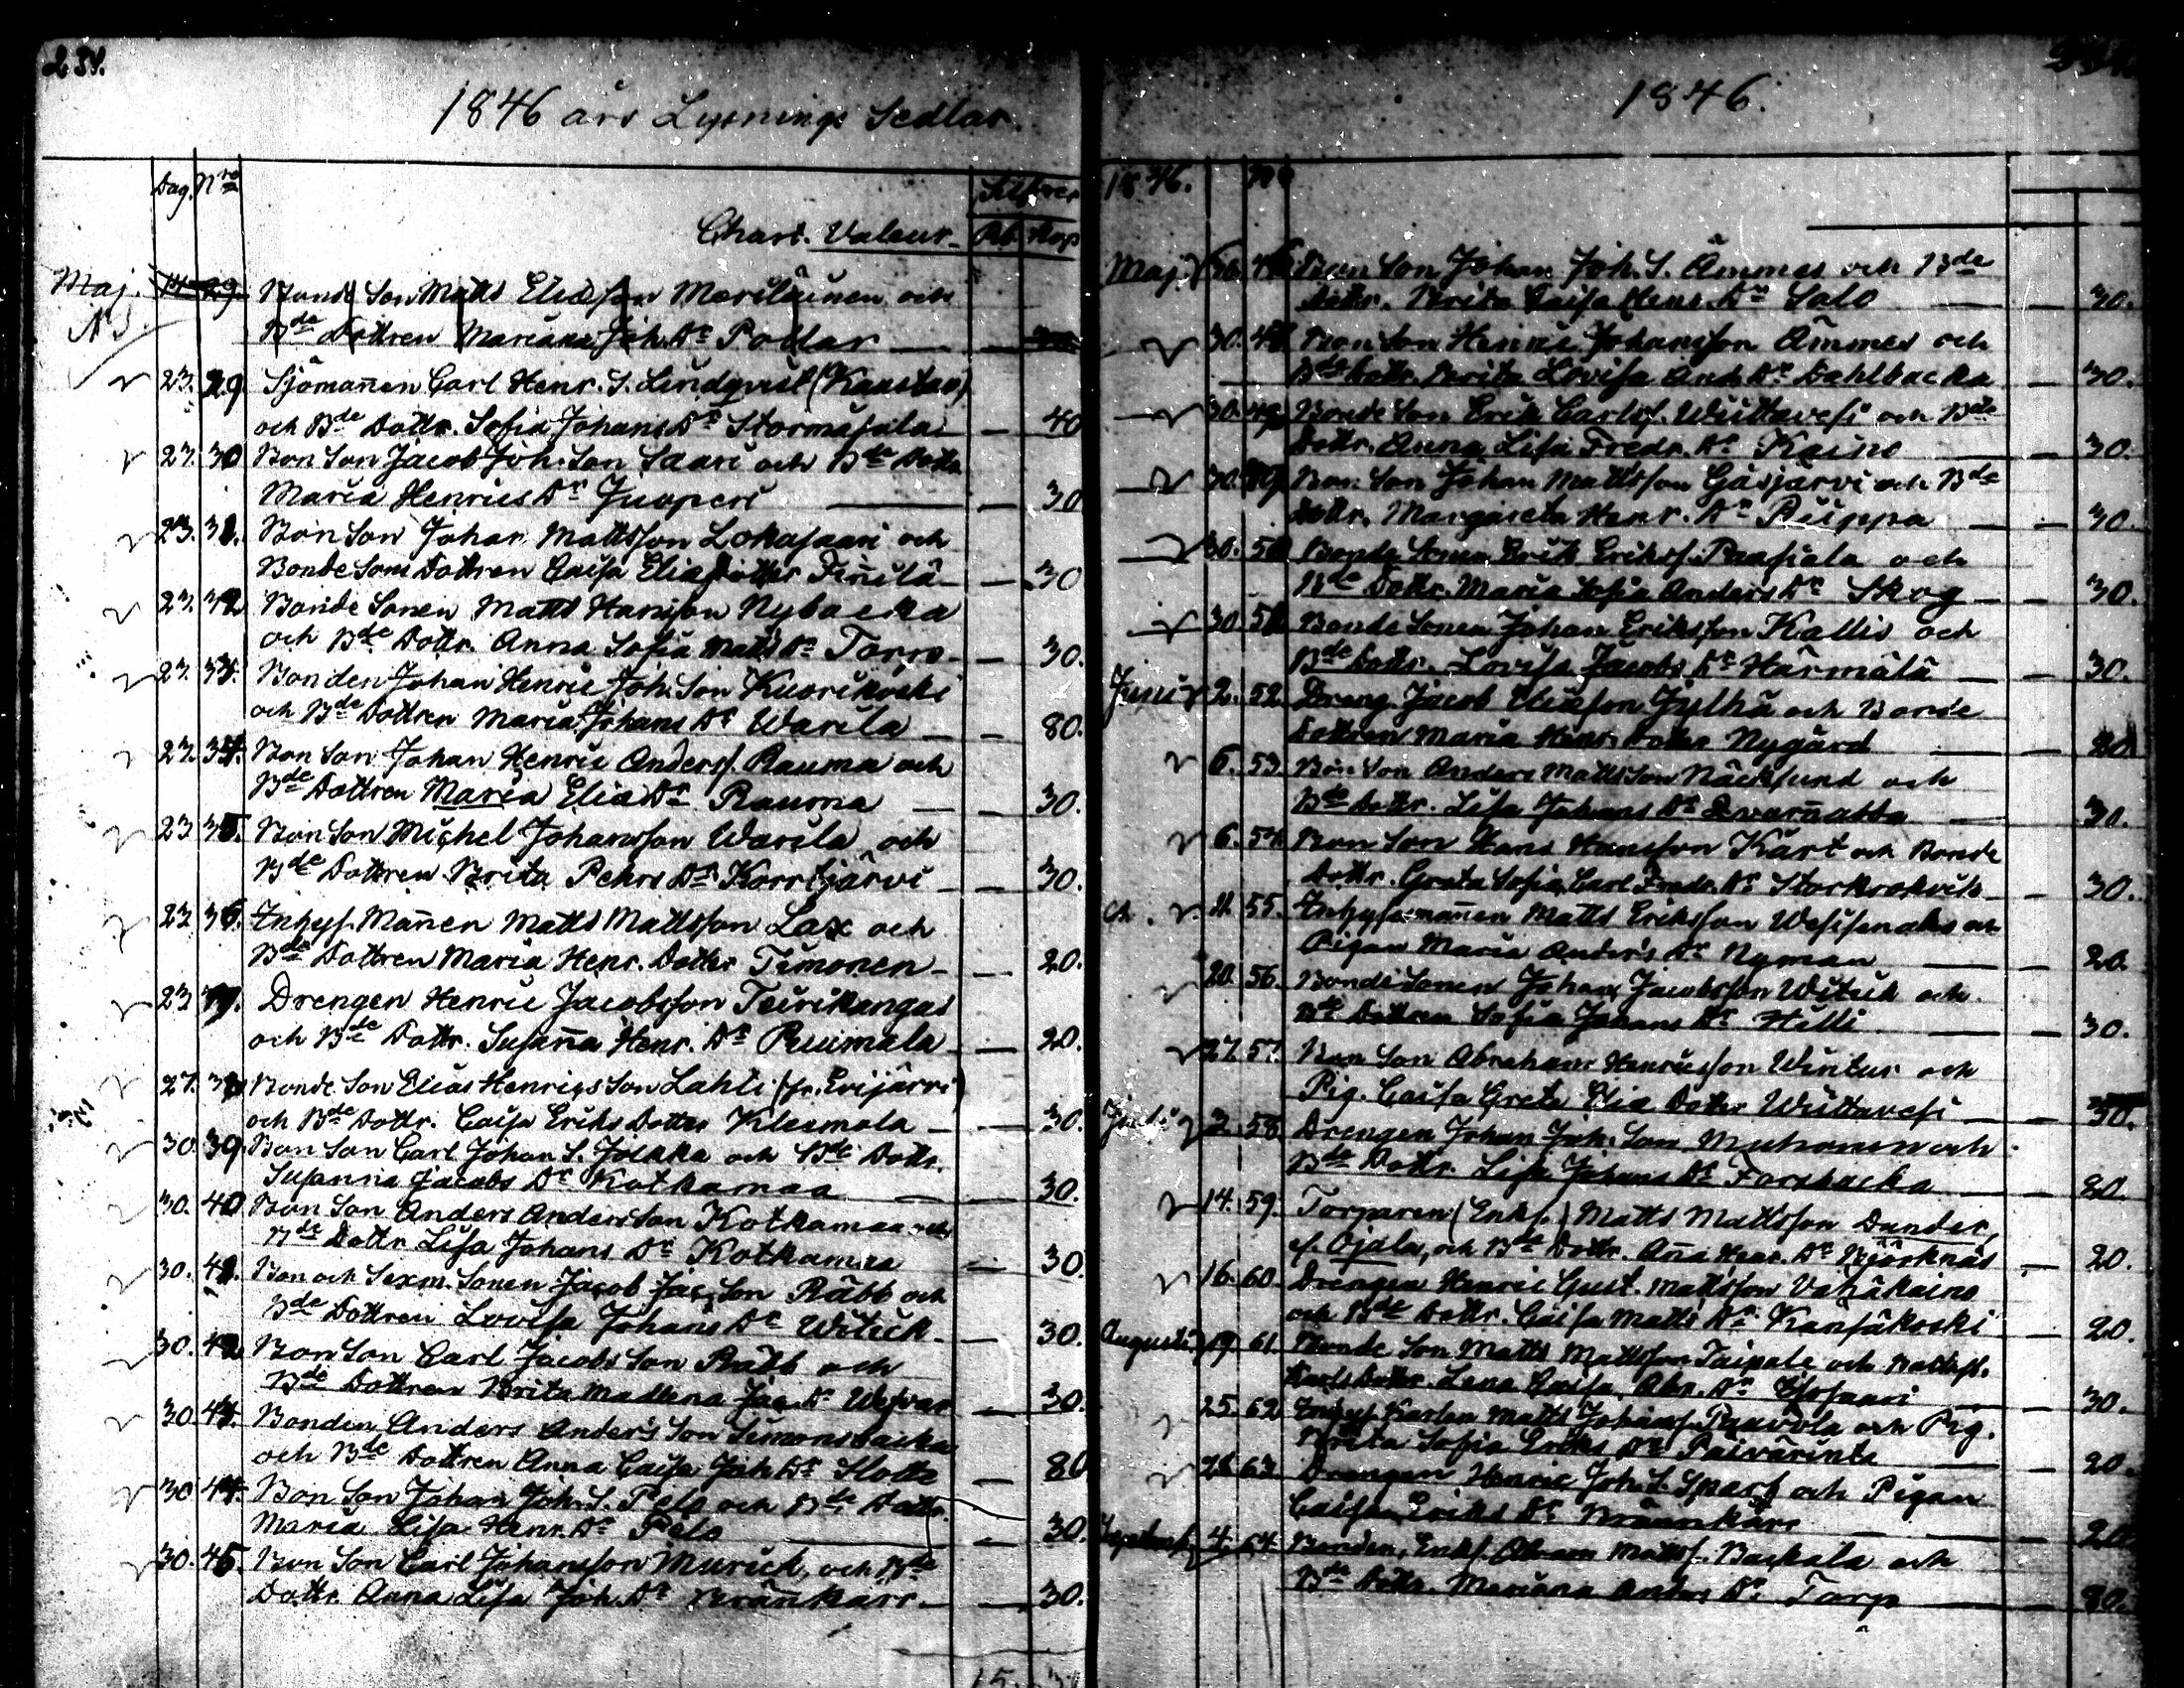 231.
1846 års Lysnings Sedlar.
Dag. Nro Silfver
Chart. Valeur. Rb. Kop
Maj. 14 29 Bonde Son Matts Eliasson Mariläinen och
NB. Bde Dottren Mariana Joh. Dr Podlar
23. 29 Sjömannen Carl Henr. S. Lindqvist (Kaustar)
och Bde Dottr. Sofia Johans Dr Stormåsala — 40
23. 30 Bon Son Jacob Joh. Son Saari och Bde Dottr
Maria Henrics Dr Juoperi — 30
23. 31. Bon Son Johan Mattsson Lokasaari och
Bonde Sons Dottren Caisa Elias Dotter Finnilä — 30
23. 32 Bonde Sonen Matts Hansson Nybacka
och Bde Dottr. Anna Sofia Matts Dr Torp — 30.
23. 33. Bonden Johan Henric Joh. Son Kuorikoski
och Bde Dottren Maria Johans Dr Warila — 80.
23. 34. Bon Son Johan Henric Anderss. Rauma och
Bde Dottren Maria Elia Dr Rauma — 30.
23 35. Bon Son Michel Johansson Warila och
Bde Dottren Brita Pehrs Dr Korrtjärvi — 30.
23 36. Inhys. Mannen Matts Mattsson Lax och
Bde Dottren Maria Henr. Dotter Timonen — 20.
23 37. Drengen Henric Jacobsson Teirikangas
och Bde Dottr. Susanna Henr. Dr Ruuimala — 20.
27. 38 Bonde Son Elias Henrics Son Lahti (fr. Evijärvi)
och Bde Dottr. Caisa Eriks Dotter Klesmola — 30.
30. 39. Bon Son Carl Johan S. Jolkka och Bde Dottr.
Susanna Jacobs Dr Kotkamaa — 30.
30. 40 Bon Son Anders Anders Son Kotkamaa och
Bde Dottr Lisa Johans Dr Kotkamaa — 30.
30. 41. Bon och Sexm. Sonen Jacob Jac. Son Räbb och
Bde Dottren Lovisa Johans Dr Witick — 30.
30. 42 Bon Son Carl Jacobs Son Räbb och
Bde Dottren Brita Mallena Jac. Dr — 30.
30 43. Bonden Anders Anders Son Simonsbacka
och Bde Dottren Anna Caisa Joh. Dr Slotte — 80
30 44. Bon Son Johan Joh. S. Pelo och Bde Dottr.
Maria Lisa Henr. Dr Pelo — 30.
30. 45. Bon Son Carl Johansson Murick, och Bde
Dottr. Anna Lisa Joh. Dr Brännkärr — 30.
1846.
1846. No
Maj. 30. 46 Bon Son Johan Joh. S. Ämmes och Bde
Dottr. Brita Caisa Henr. Dr Salo — 30.
30. Bon Son Henric Johansson Ämmes och
Bde Dottr. Brita Lovisa And. Dr Dahlbacka — 30.
30. Bonde Son Erik Carlss. Wiittavesi och Bde
Dottr. Anna Lisa Fredr. Dr Kaino — 30.
30. Bon Son Johan Mattsson Gäsjärvi och Bde
Dottr. Margareta Henr. Dr Piippa — 30.
30. 50 Bonde Sonen Erik Erikss. Passiala och
Bde Dottr. Maria Sofia Anders Dr Skog — 30.
30. 51 Bonde Sonen Johan Eriksson Kallis och
Bde Dottr. Lovisa Jacobs Dr Härmälä — 30.
Juni 2. 52. Dreng. Jacob Eliasson Jylhä och Bonde
Dottren Maria Henr. Dotter Nygård — 20.
6. 53 Bon Son Anders Mattsson Näcksund och
Bde Dottr. Lisa Johans Dr — 30.
6. 54 Bon Son Hans Hansson Kärt och Bonde
Dottr. Greta Sofia Carl Fredr. Dr Storkrokvik — 30.
11. 55. Inhysesmannen Matts Eriksson Wesisenaho och
Pigan Maria Anders Dr Nyman — 20.
20. 56. Bonde Sonen Johan Jacobsson Witick och
Bde Dottren Sofia Johans Dr Hilli — 30.
27. 57. Bon Son Abraham Henricsson Wintur och
Pig. Caisa Greta Elia Dotter Wiittavesi — 30.
Juli 2. 58. Drengen Johan Joh. Son Muhonen och
Bde Dottr. Lisa Johans Dr Forsbacka — 20.
14. 59. Torparen (Enkl.) Matts Mattsson Dunder,
el. Ojala, och Bde Dottr. Anna Henr. Dr Björknäs — 20.
16. 60. Drengen Henric Gust. Mattsson Vähäkaino
och Bde Dottr. Caisa Matts Dr Kansäkoski — 20.
Augusti 19 61. Bonde Son Matts Mattsson Taipale och
Dottr. Lena Caisa Abr. Dr — 30.
25. 62 Inhys Karlen Matts Johanss. Paavola och Pig.
Brita Sofia Eriks Dr Paivärinta — 20.
28 63 Drengen Henric Joh. S. Sparf och Pigan
Caisa Eriks Dr Brännkärr — 20
4. 64 Bonden, Enkl. Abram Matts. Backala och
Bde Dottr. Mariana Anders Dr Torp — 80.